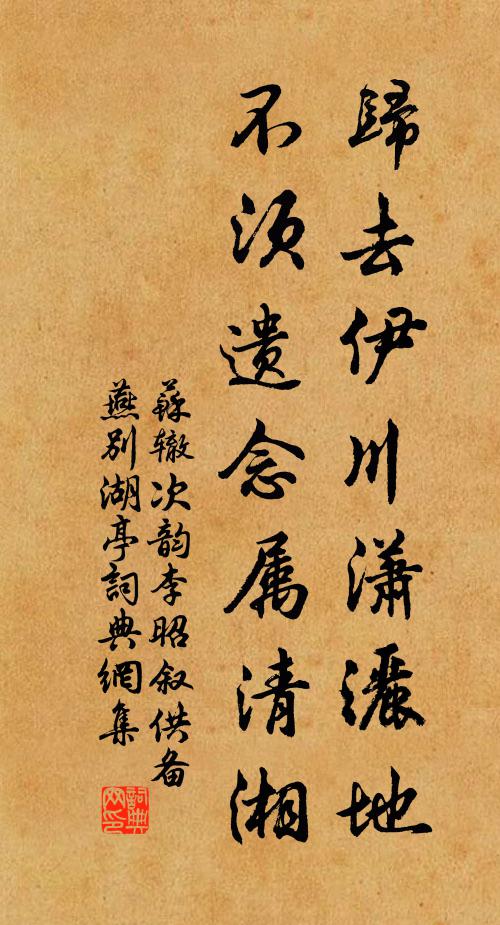 歸去伊川瀟灑地
不须遗念属清湘
蘇辙次韵李昭叙供备
燕别湖亭詞典網集
詞典网印